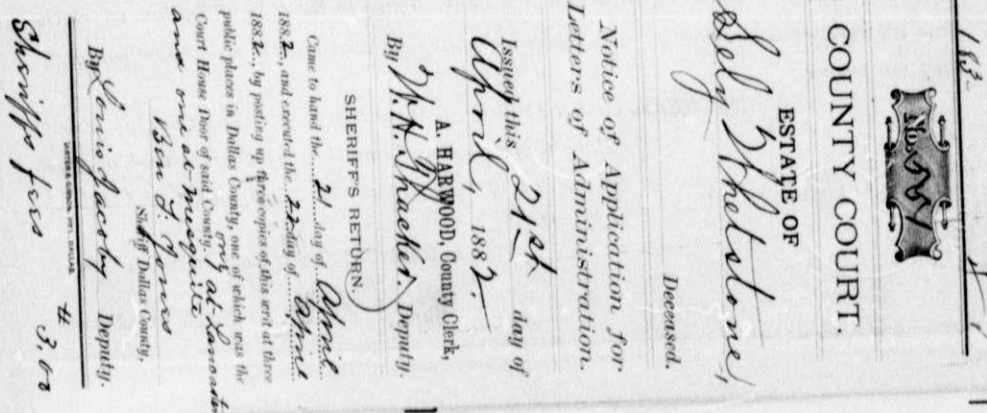 183-
No.
COUNTY COURT
ESTATE OF
Whetstone,
Deceased.
Notice of Application for
Letters of Administration.
Issued this 21st day of
April, 1882.
A. HARWOOD, County Clerk,
By W. H. Thacker. Deputy.
SHERIFF'S RETURN.
Came to hand the 21 day of April
1882, and executed the 22 day of April
1882, by posting up three copies of this writ at three
public places in Dallas County, one of which was the
Court House Door of said County, one at Lancaster
and one at Mesquite
Ben J. Jones
Sheriff Dallas County,
By Louis Jacoby Deputy.
Sheriffs fees $ 3.00